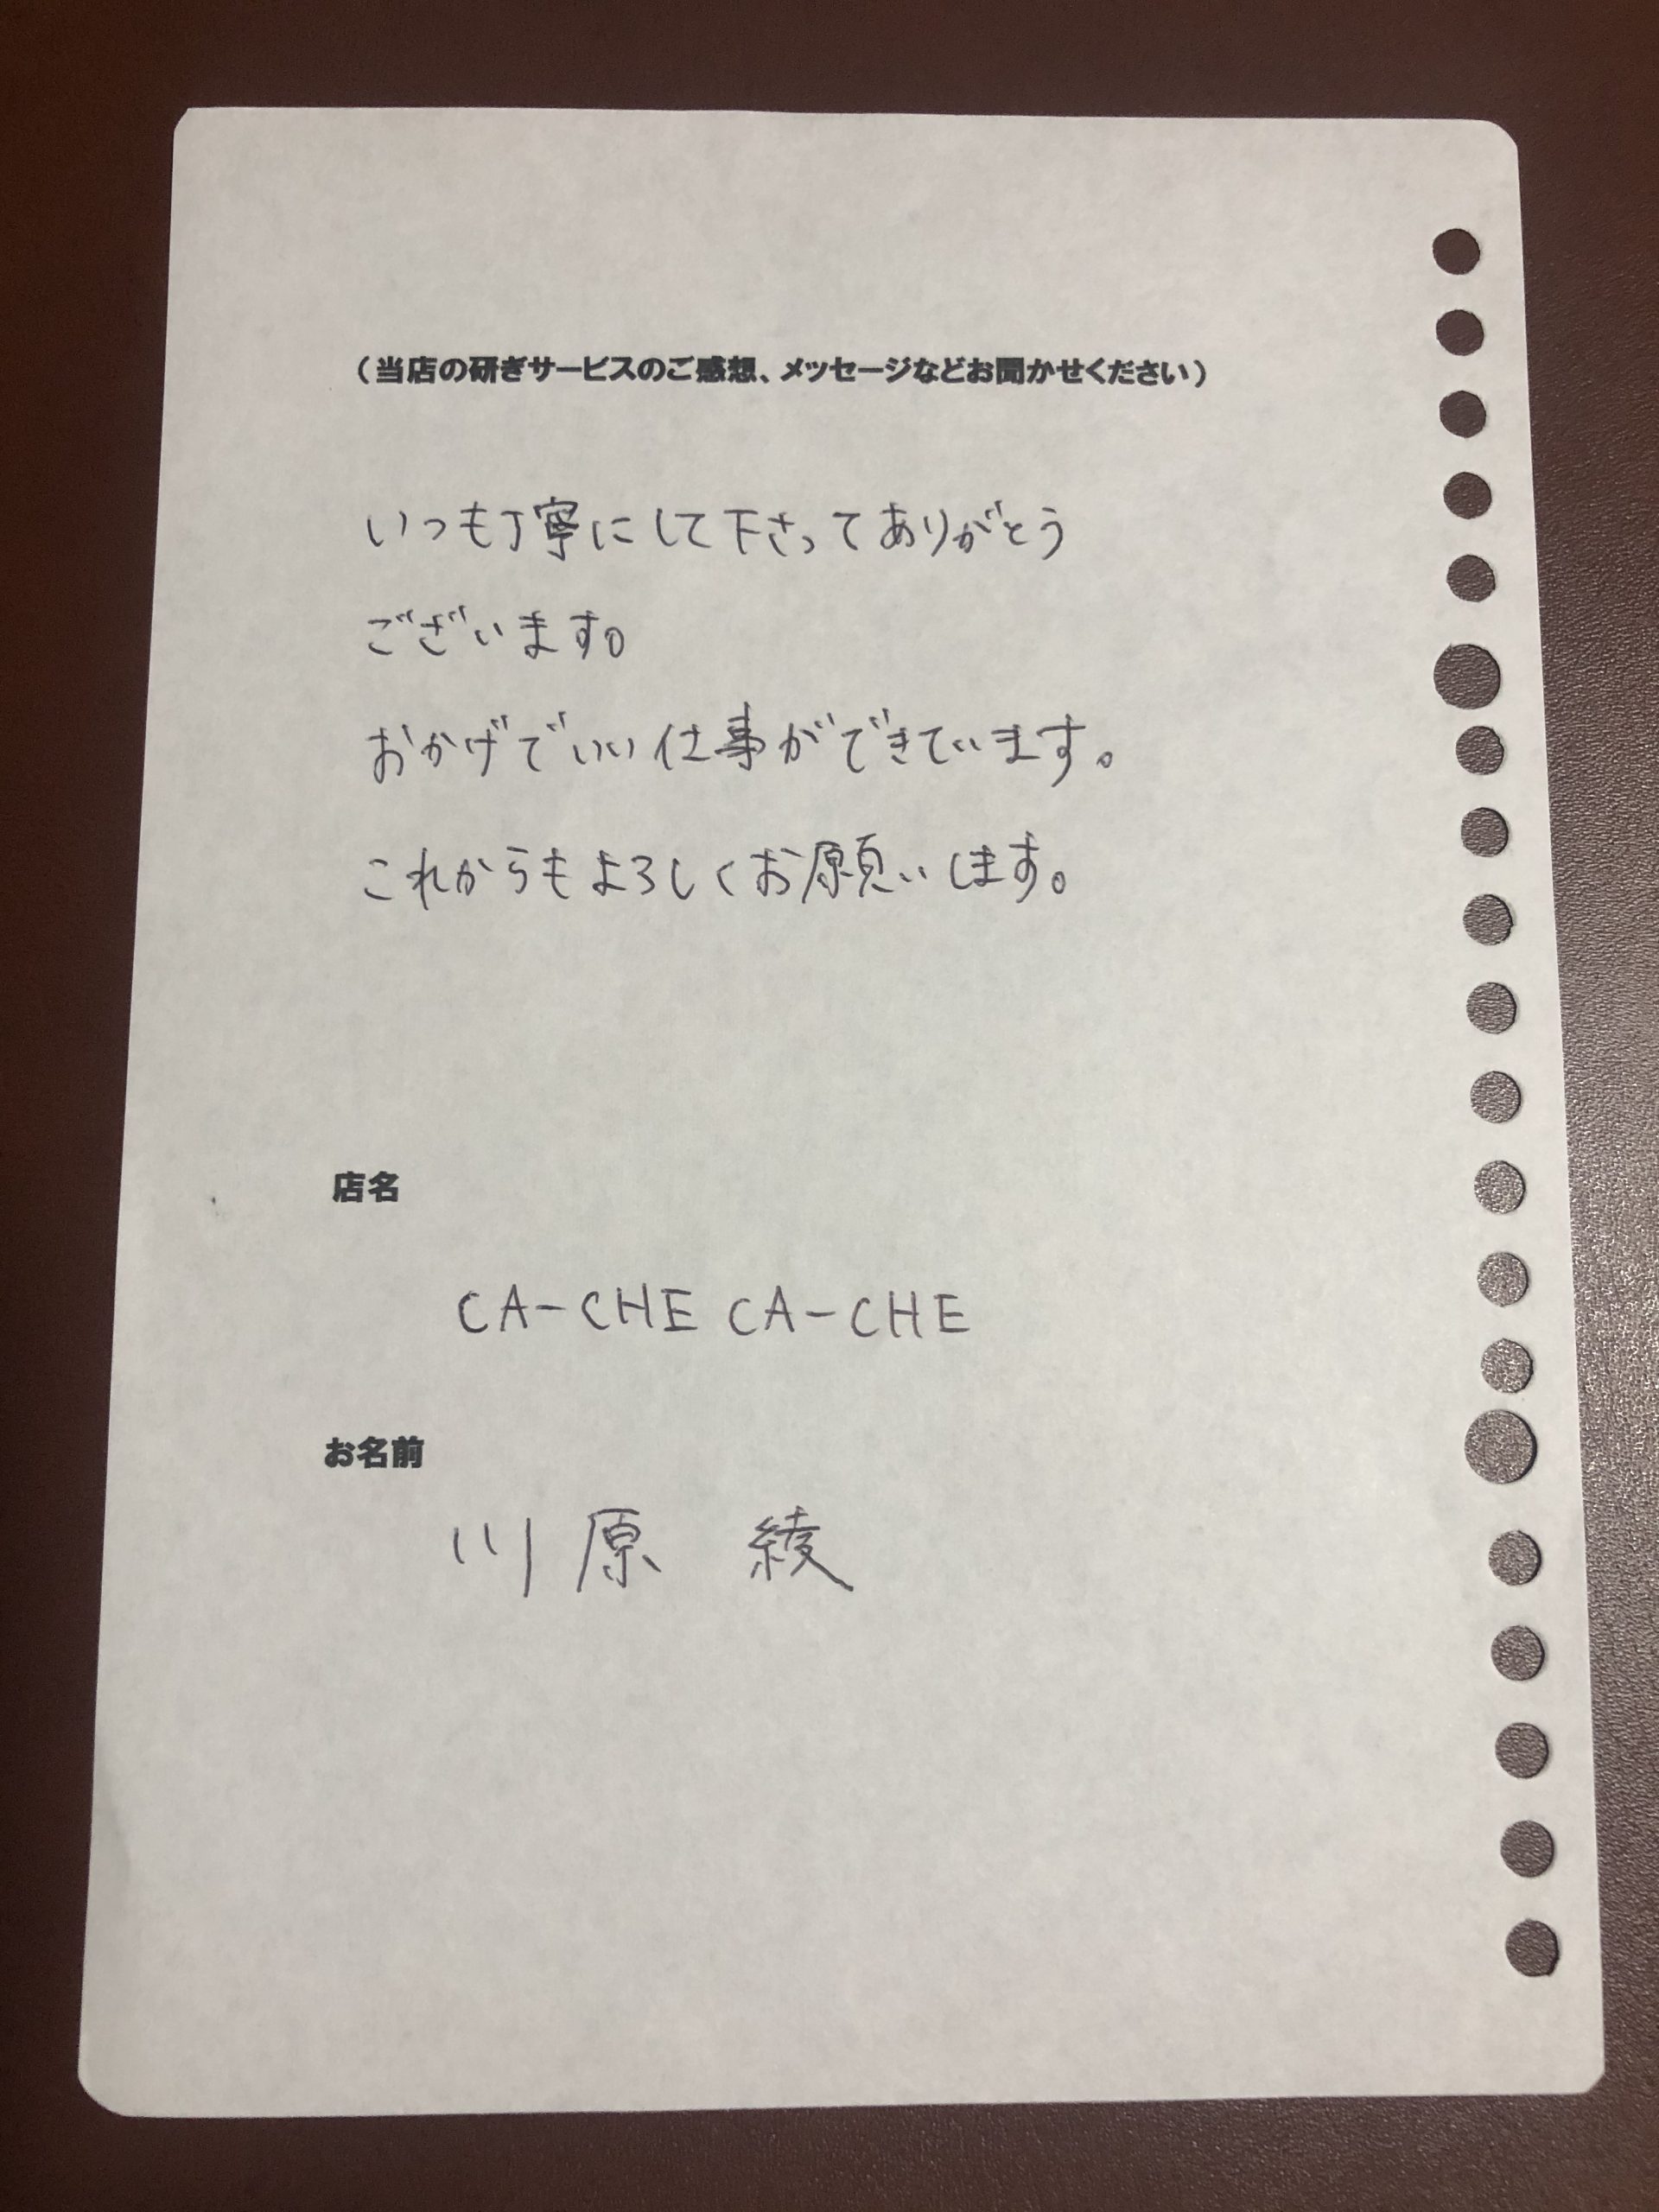 （当店の研ぎサービスのご感想、メッセージなどお聞かせください）
いつも丁寧にして下さってありがとう
ございます。
おかげでいい仕事ができています。
これからもよろしくお願いします。
店名
CA-CHE CA-CHE
お名前
川原 綾